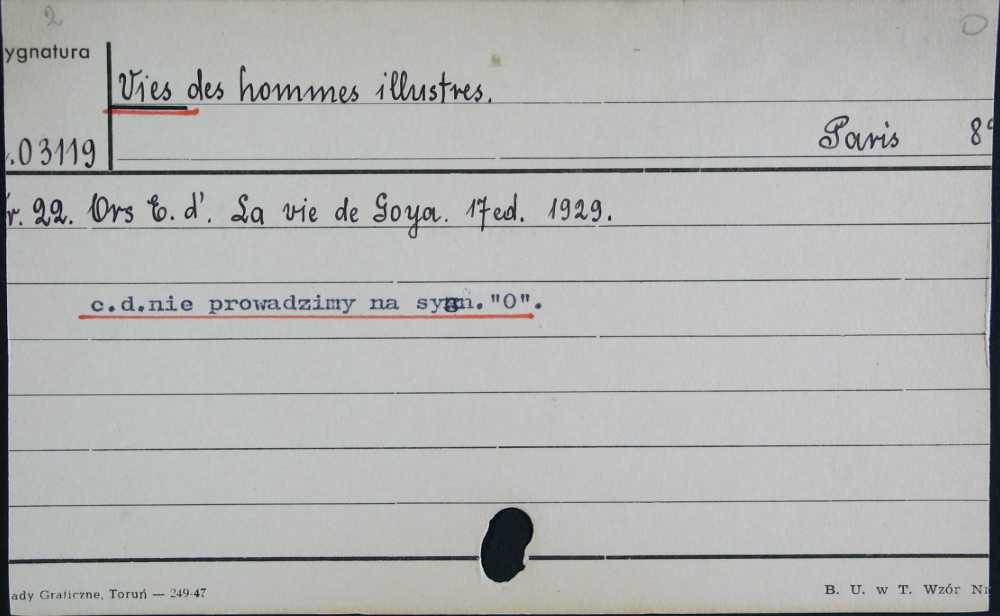 2
ygnatura
Vies des hommes illustres.
.03119
Paris 8°
r. 22. Ors E. d'. La vie de Goya. 17ed. 1929.
c.d.nie prowadzimy na sygn."O".
ady Graficzne, Toruń — 249-47
B. U. w T. Wzór Nr